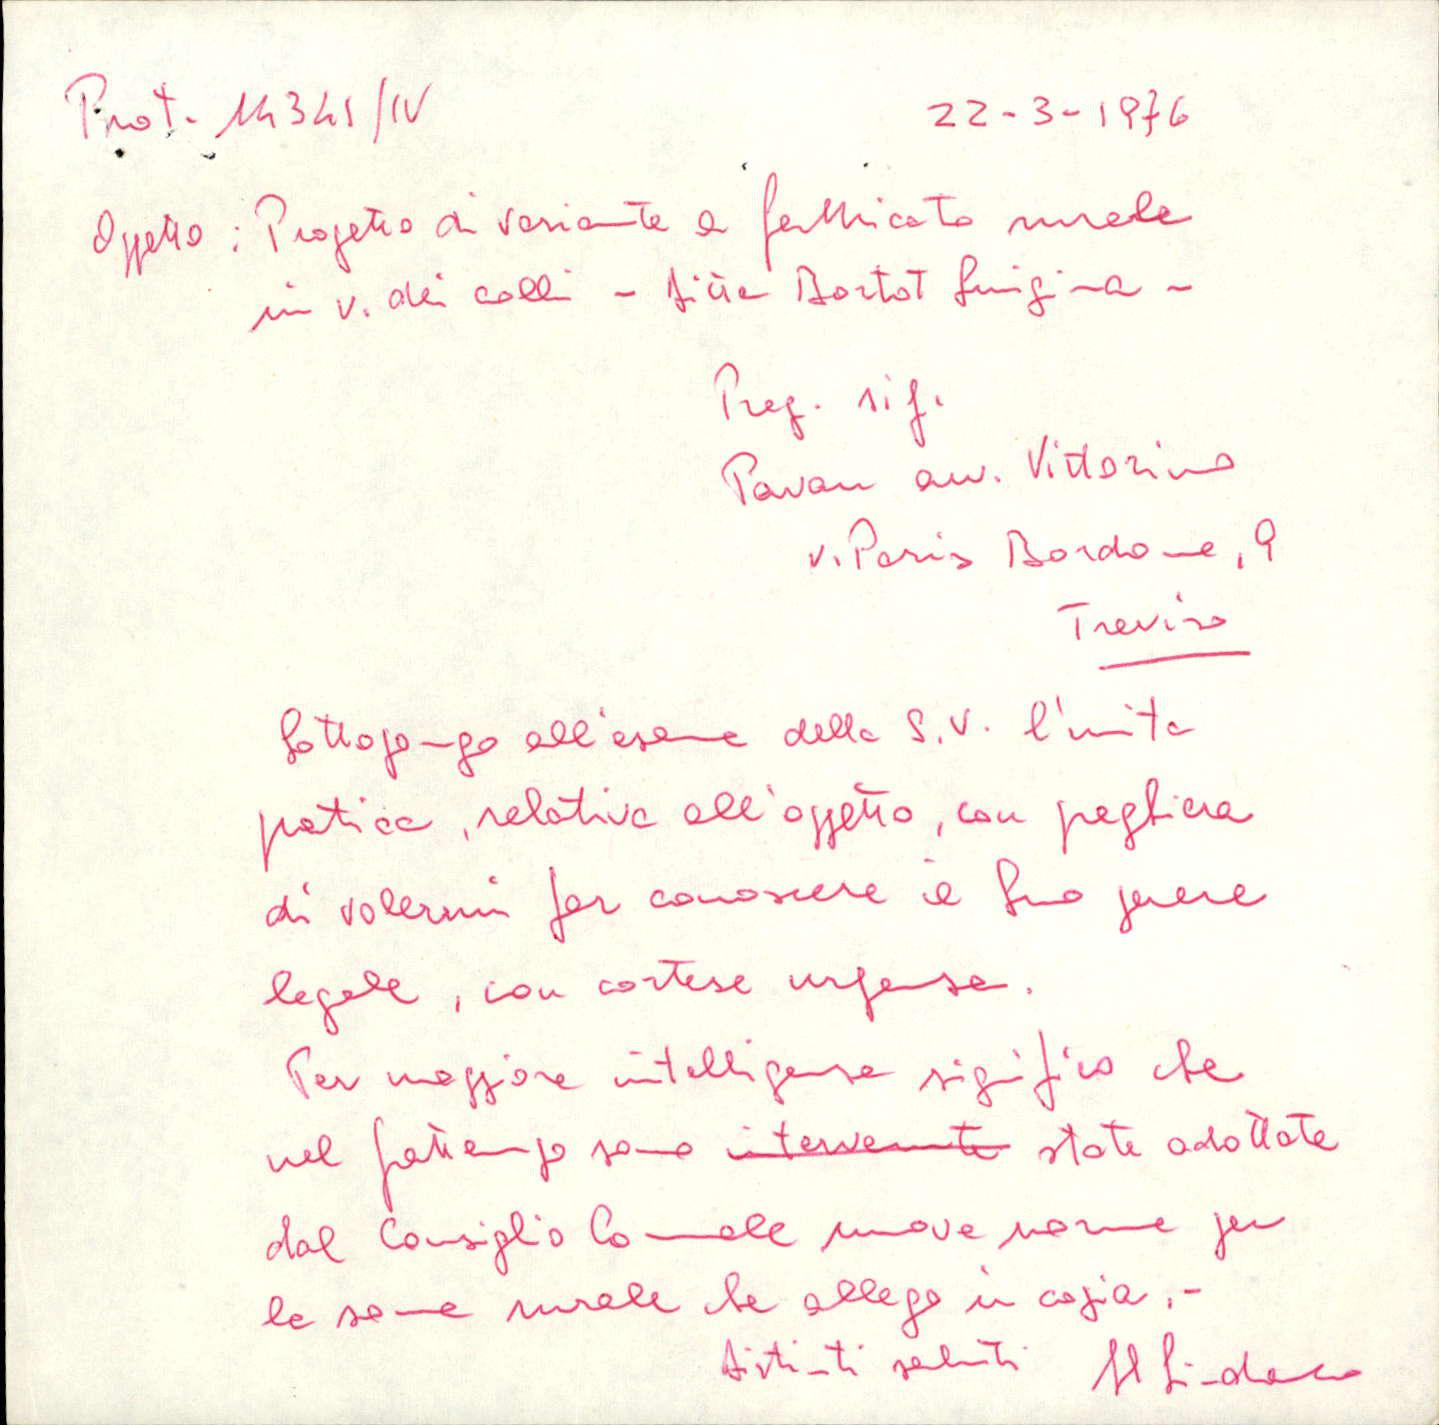 Prot. 14341/IV 22-3-1976
Oggetto: Progetto di variante a fabbricato rurale
in v. dei colli - Ditta Bortot Luigina -
Preg. sig.
Pavan avv. Vittorino
v. Paris Bordone, 9
Treviso
Sottopongo all'esame della S.V. l'unita
pratica, relativa all'oggetto, con preghiera
di volermi far conoscere il Suo parere
legale, con cortese urgenza.
Per maggiore intelligenza significo che
nel frattempo sono intervenute state adottate
dal Consiglio Comunale nuove norme per
le zone rurali che allego in copia.-
Distinti saluti Il Sindaco